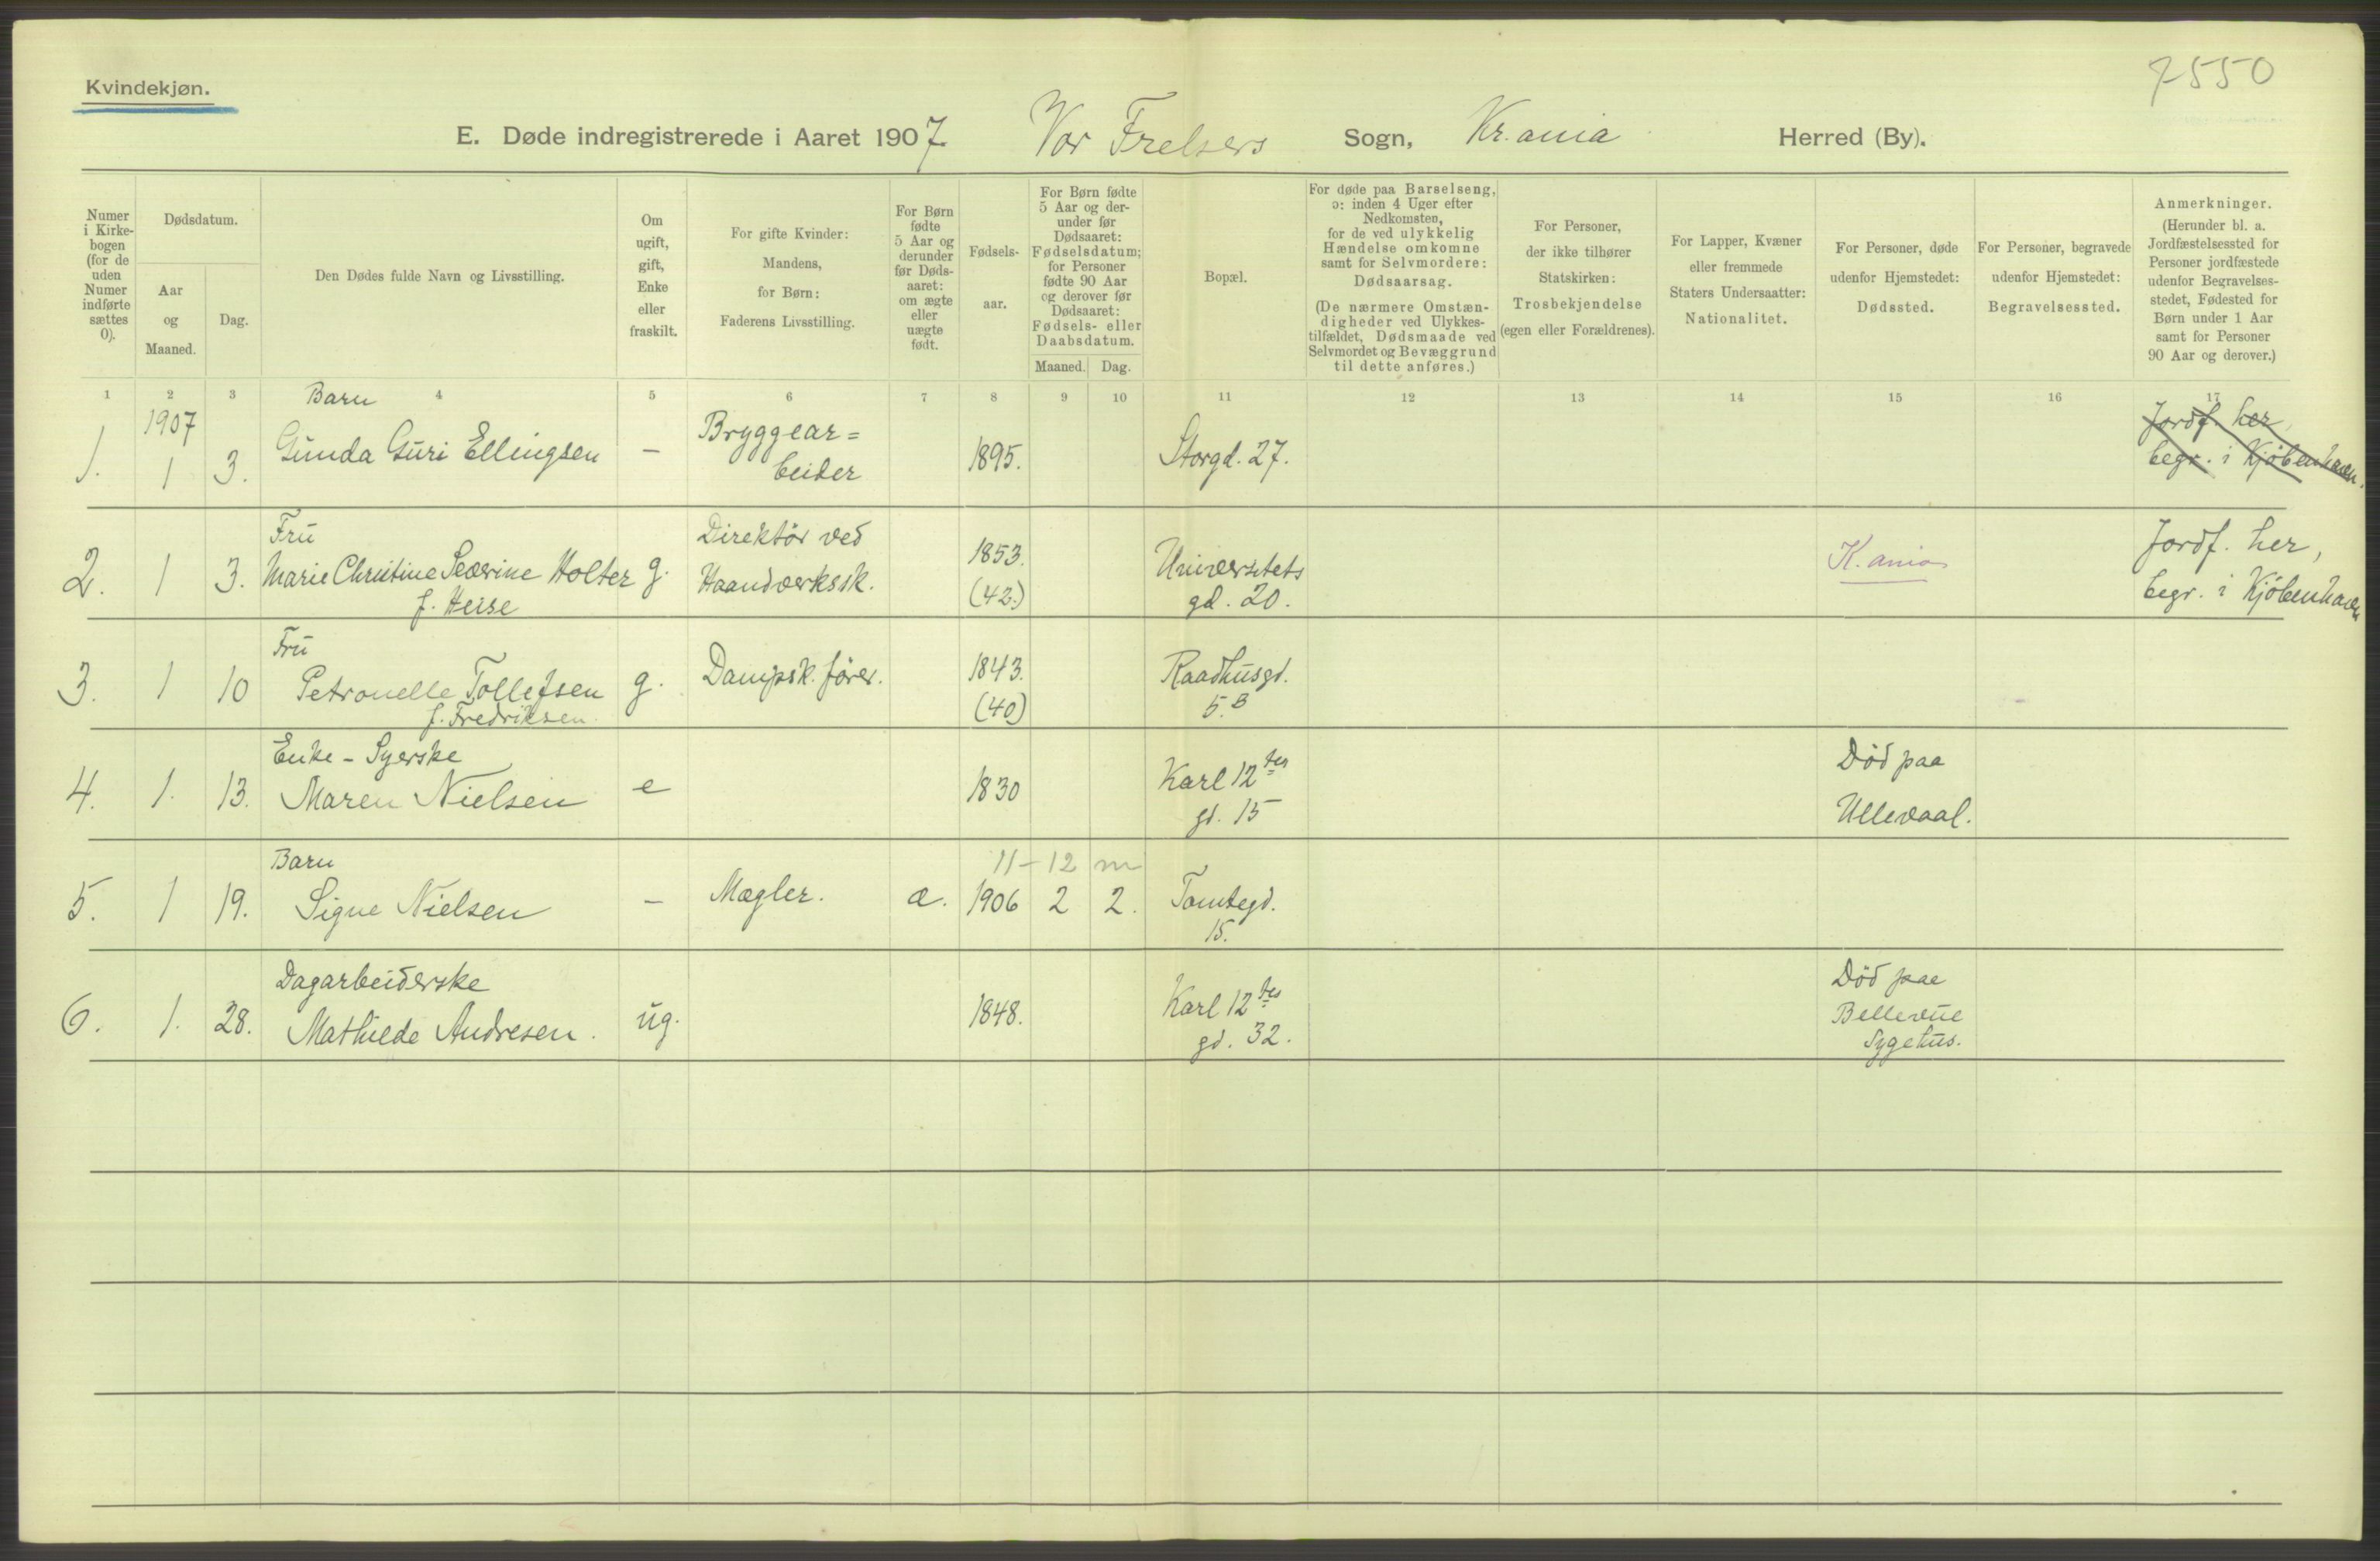 7550
Kvindekjøn.
E. Døde indregistrerede i Aaret 1907. Vor Frelsers Sogn, Kr.ania Herred (By).
Numer
i Kirke-
bogen
(for de
uden
Numer
indførte
sættes
0).
Dødsdatum.
Aar
og
Maaned.
Dag.
Den Dødes fulde Navn og Livsstilling.
Om
ugift,
gift,
Enke
eller
fraskilt.
For gifte Kvinder:
Mandens,
for Børn:
Faderens Livsstilling.
For Børn
fødte
5 Aar og
derunder
før Døds-
aaret:
om ægte
eller
uægte
født.
Fødsels-
aar.
For Børn fødte
5 Aar og der-
under før
Dødsaaret:
Fødselsdatum;
for Personer
fødte 90 Aar
og derover før
Dødsaaret:
Fødsels- eller
Daabsdatum.
Maaned. Dag.
Bopæl.
For døde paa Barselseng,
ɔ: inden 4 Uger efter
Nedkomsten,
for de ved ulykkelig
Hændelse omkomne
samt for Selvmordere:
Dødsaarsag.
(De nærmere Omstæn-
digheder ved Ulykkes-
tilfældet, Dødsmaade ved
Selvmordet og Bevæggrund
til dette anføres.)
For Personer,
der ikke tilhører
Statskirken:
Trosbekjendelse
(egen eller Forældrenes).
For Lapper, Kvæner
eller fremmede
Staters Undersaatter:
Nationalitet.
For Personer, døde
udenfor Hjemstedet:
Dødssted.
For Personer, begravede
udenfor Hjemstedet:
Begravelsessted.
Anmerkninger.
(Herunder bl. a.
Jordfæstelsessted for
Personer jordfæstede
udenfor Begravelses-
stedet, Fødested for
Børn under 1 Aar
samt for Personer
90 Aar og derover.)
1 2 3 4 5 6 7 8 9 10 11 12 13 14 15 16 17
1907 Barn
1. 1 3. Gunda Guri Ellingsen — Bryggear=
beider 1895. Storgd. 27. Jordf. her,
begr. i Kjöbenhavn.
Fru
2. 1 3. Marie Christine Severine Holter
f. Heise g. Direktör ved
Haandverkssk. 1853.
(42.) Universitets
gd. 20. K.ania Jordf. her,
begr. i Kjöbenhavn
Fru
3. 1 10 Petronelle Tollefsen
f. Fredriksen. g. Dampsk. förer. 1843.
(40) Raadhusgd.
5.B
Enke - Syerske
4. 1. 13. Maren Nielsen e 1830 Karl 12tes
gd. 15 Död paa
Ullevaal.
Barn 11-12 m
5. 1 19. Signe Nielsen — Mægler. æ. 1906 2 2. Tomtegd.
15.
Dagarbeiderske
6. 1. 28. Mathilde Andresen. ug. 1848. Karl 12tes
gd. 32. Död paa
Bellevue
Sygehus.